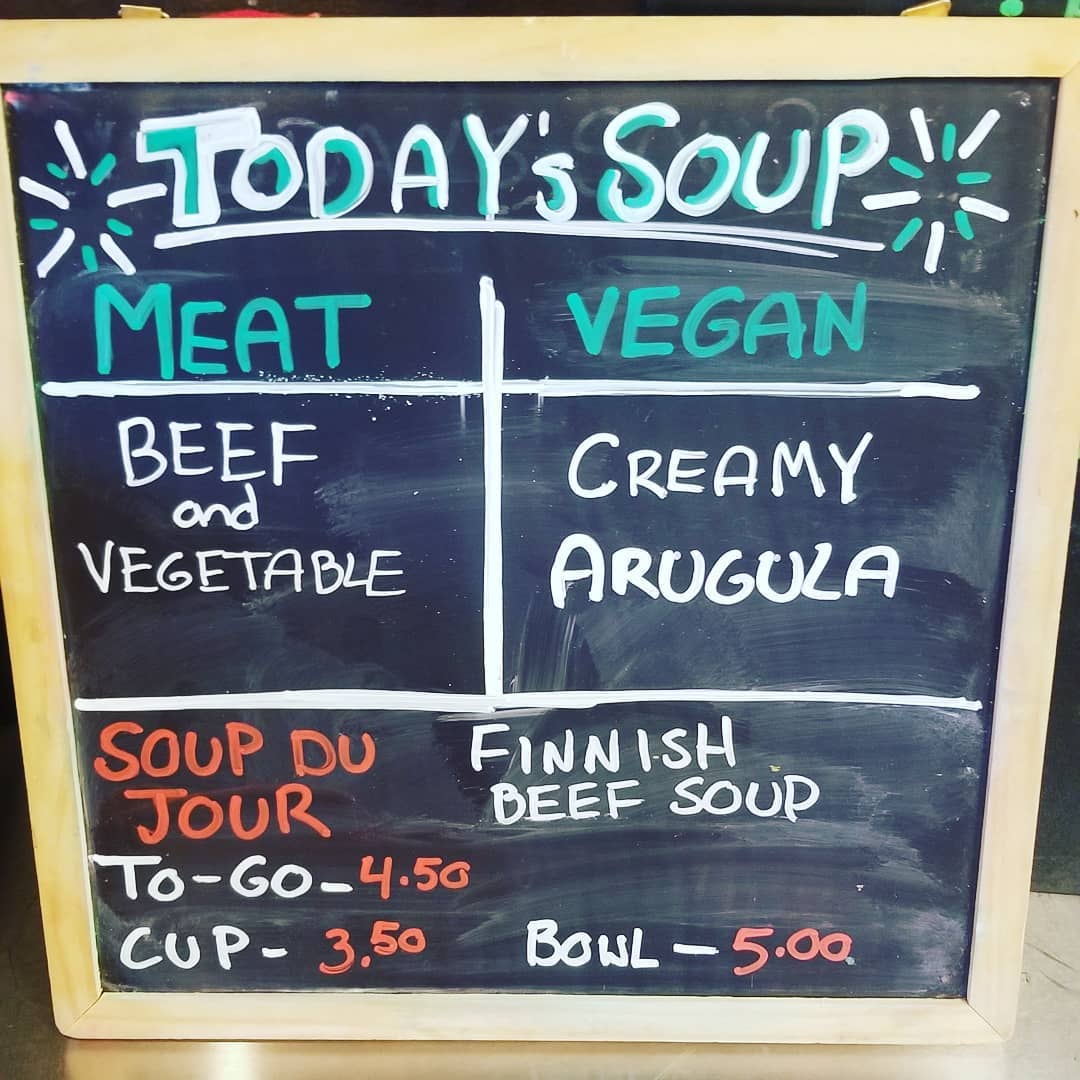 TODAY's SOUP
MEAT VEGAN
BEEF
and
VEGETABLE
CREAMY
ARUGULA
SOUP DU
JOUR
FINNISH
BEEF SOUP
TO-GO- 4.50
CUP- 3.50 BOWL - 5.00